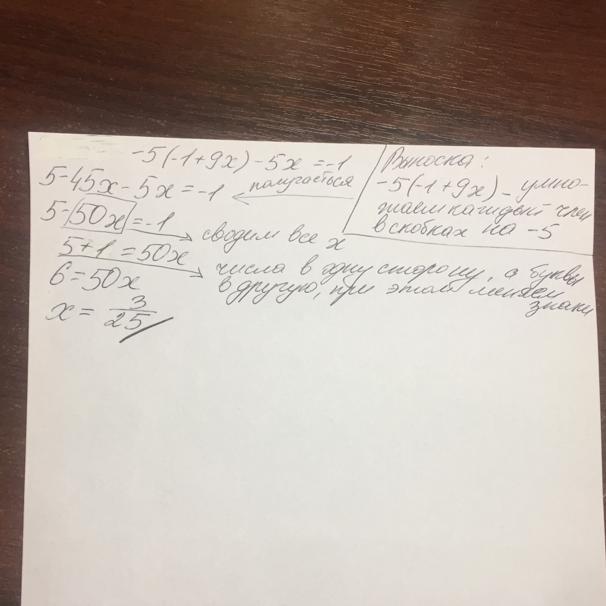 -5(-1+9x)-5x=-1
5-45x-5x=-1
получається
5-50x=-1
сводим все x
5+1=50x
числа в одну сторону, а буквы
в другую, при этом меняем
знаки
6=50x
x=3/25
Выноска:
-5(-1+9x) - умно-
жаем каждый член
в скобках на -5